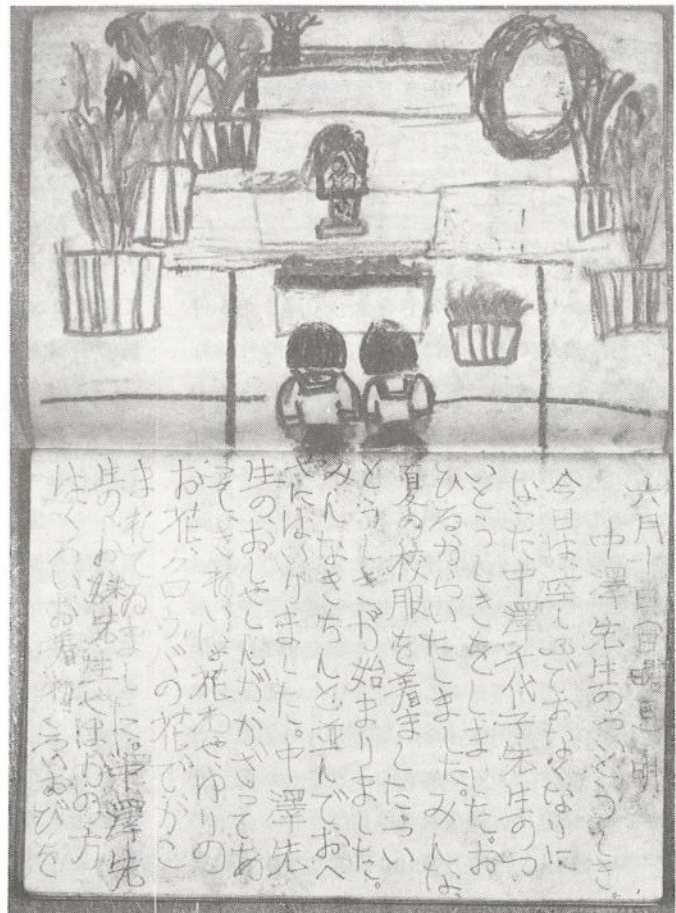 六月十日(日曜日)晴
中澤先生のついとうしき。
今日は空しふでおなくなりに
なった中澤千代子先生のつ
いとうしきをしました。お
ひるからいたしました。みんな
夏の校服を着ました。つい
とうしきが始まりました。
みんなきちんと並んでおへ
やにはいりました。中澤先
生の、おしゃしんが、かざってあ
って、きれいな花わやゆりの
お花、クローバの花でがこ
まれてゐました。中澤先
生の、お妹先生やほかの方
はくろいお着物、くろいおびを